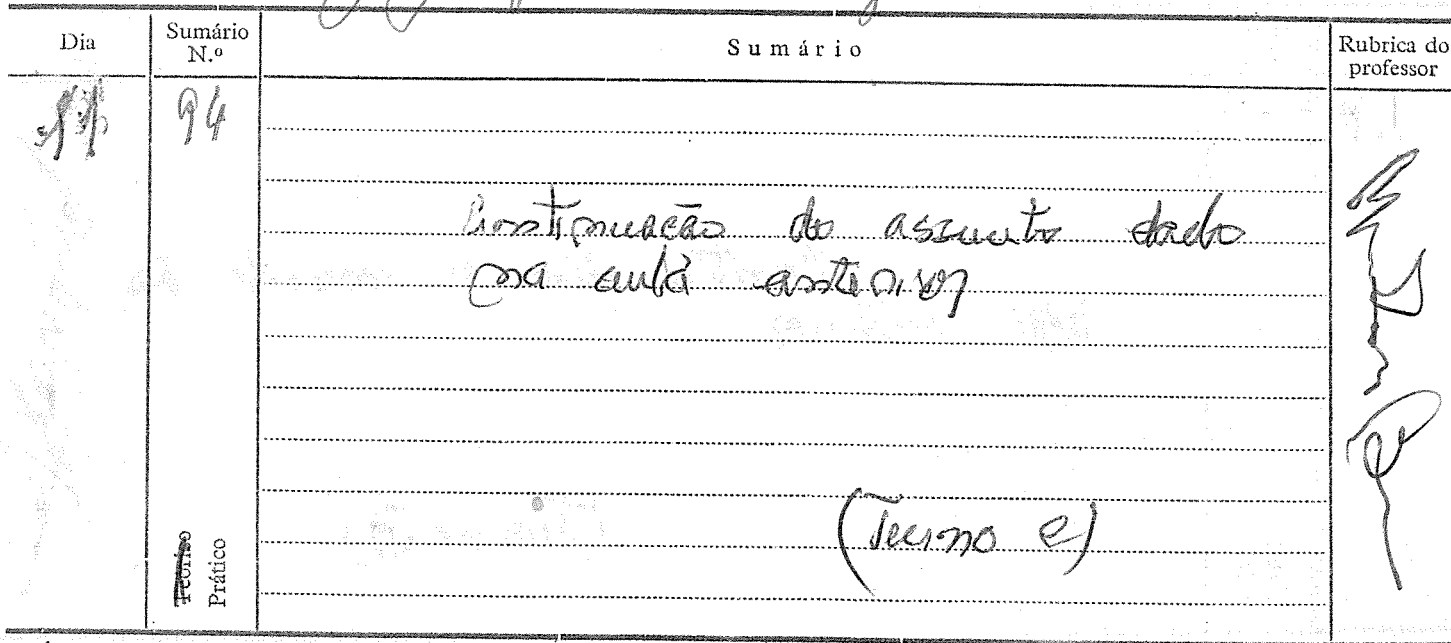 Dia
Sumário
N.º
Sumário
Rubrica do
professor
94
Continuação do assunto dado
na aula anterior
Teórico
Prático